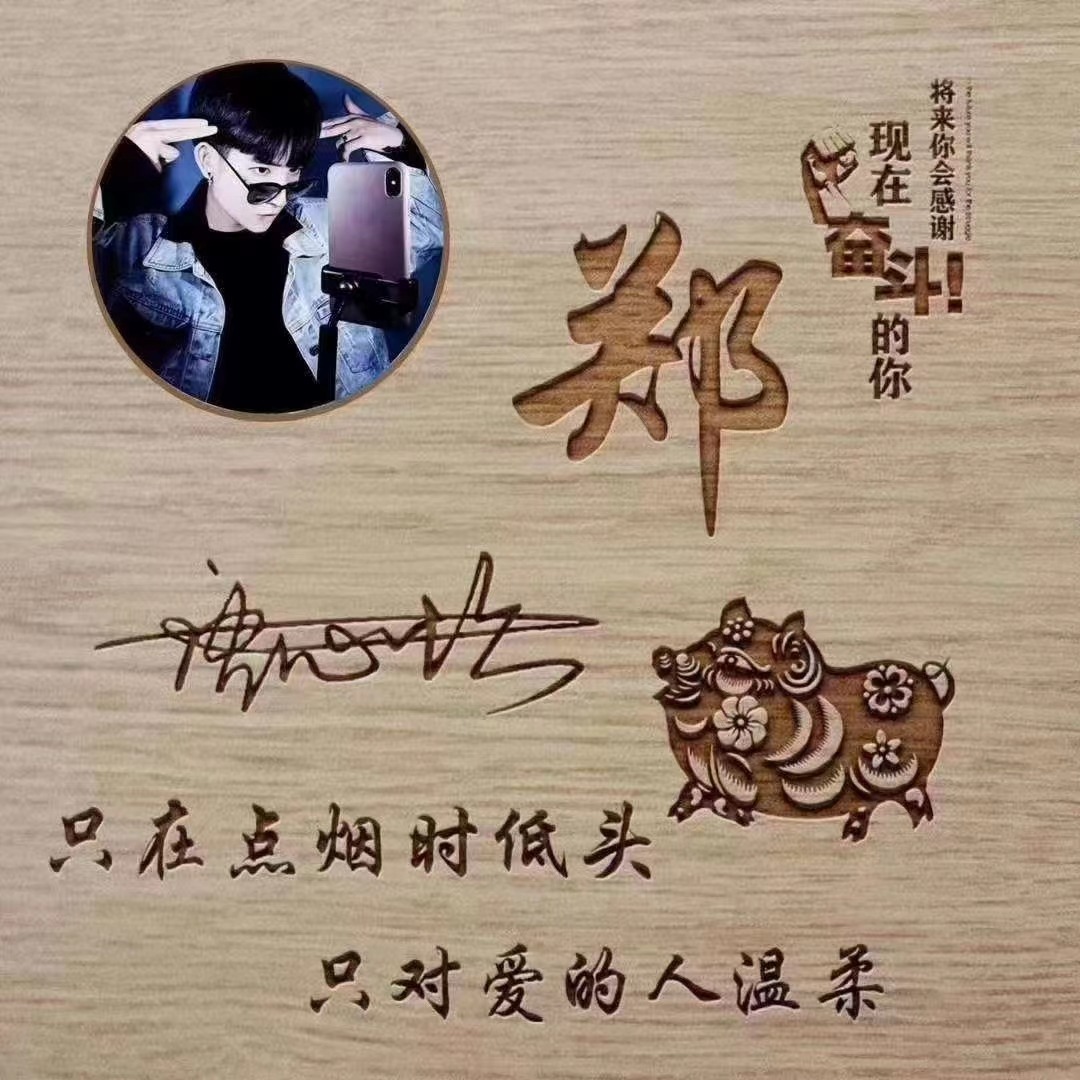 将来你会感谢
现在
奋斗!
的你
郑
只在点烟时低头
只对爱的人温柔